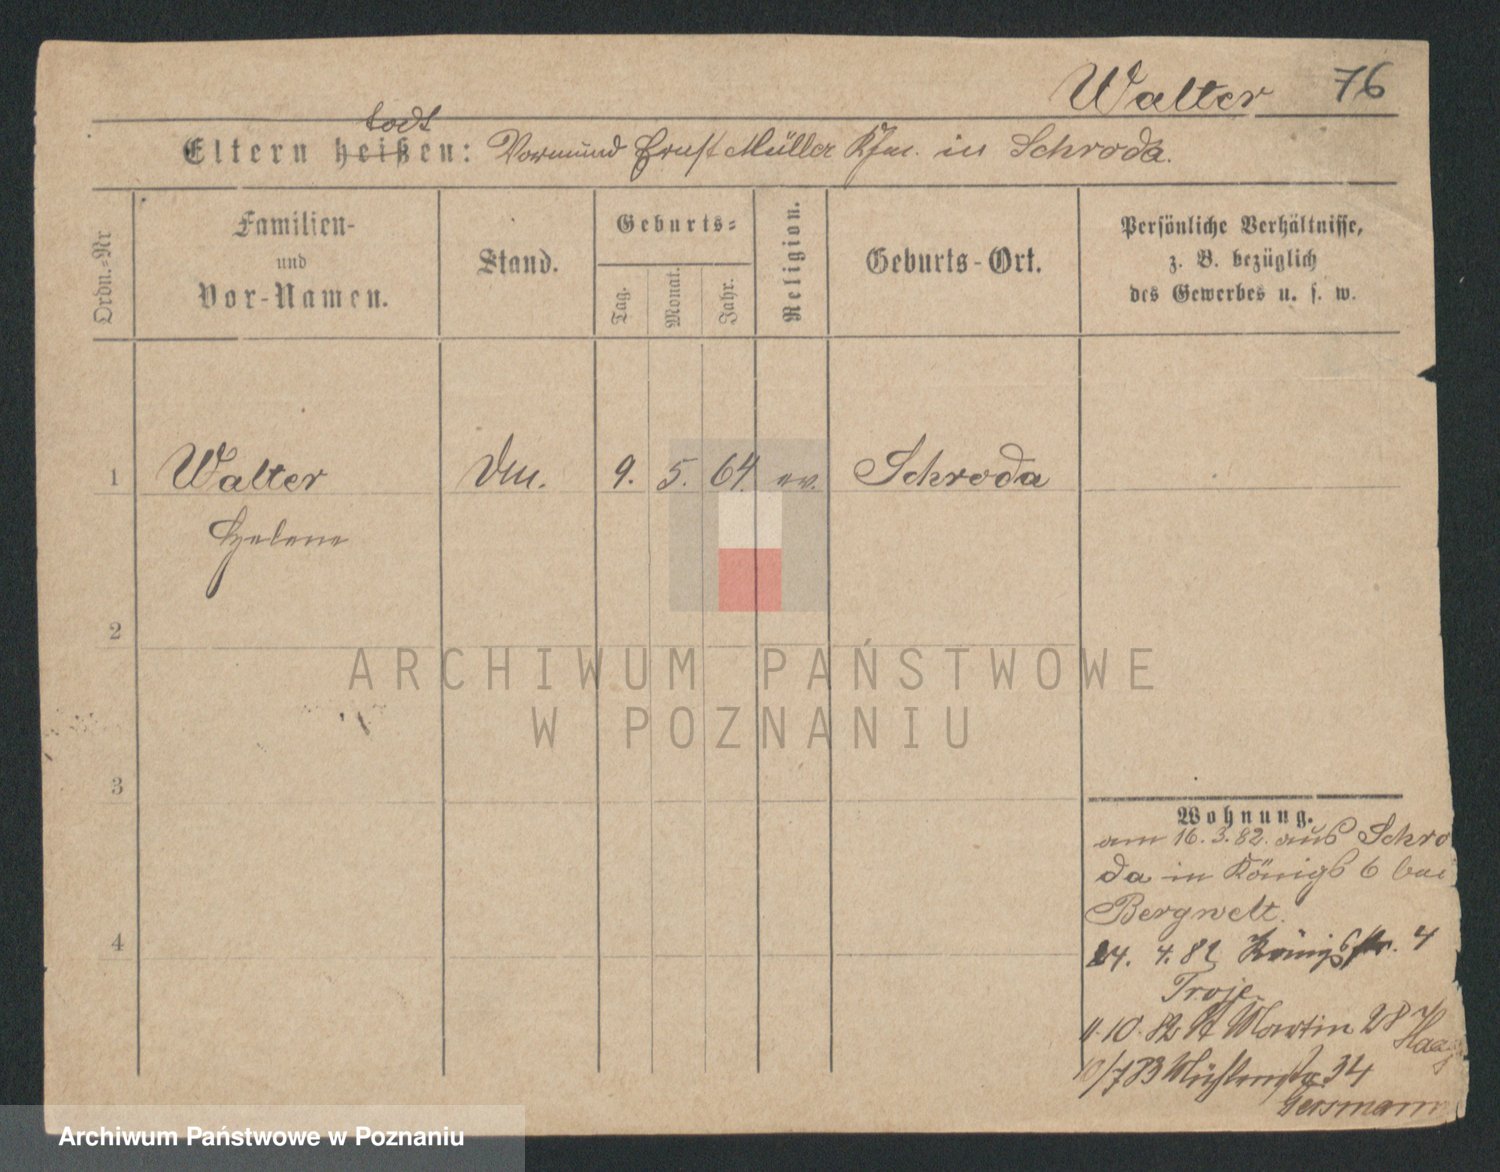 Walter 76
todt
Eltern heißen: Vormund Ernst Müller Kfm. in Schroda.
Ordn.-Nr
Familien-
und
Vor-Namen.
Stand.
Geburts-
Tag.
Monat.
Jahr.
Religion.
Geburts-Ort.
Persönliche Verhältnisse,
z. B. bezüglich
des Gewerbes u. s. w.
1 Walter 9. 5. 64. ev. Schroda
Helene
2
ARCHIWUM PAŃSTWOWE
W POZNANIU
3
Wohnung.
am 16.3.82. aus Schro
da in Königs 6 bei
Bergwelt.
4
24. 4. 82 Königsstr. 4
Troje
11.10.82 St Martin 28 Haag
10/7 83 Mühlenstr. 34
Gersmann
Archiwum Państwowe w Poznaniu